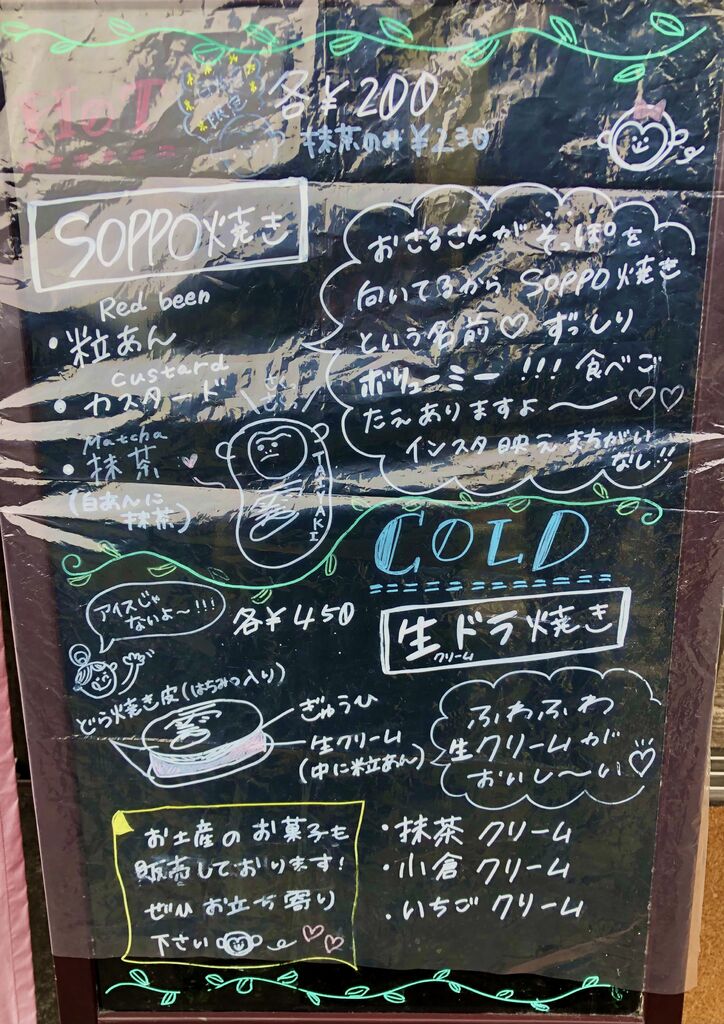 HOT
各¥200
抹茶のみ¥230
SOPPO焼き
Red been
・粒あん
custard
・カスタード
Matcha
・抹茶
(白あんに
抹茶)
TAIYAKI
おさるさんがそっぽを
向いてるからSOPPO焼き
という名前♡ずっしり
ボリューミー!!!食べご
たえありますよ〜〜♡♡
インスタ映えまちがい
なし!!
COLD
アイスじゃ
ないよ〜!!!
各¥450
生ドラ焼き
クリーム
どら焼き皮(はちみつ入り)
ぎゅうひ
生クリーム
(中に粒あん)
ふわふわ
生クリームが
おいし〜い♡
お土産のお菓子も
販売しております!
ぜひお立ち寄り
下さい
・抹茶クリーム
・小倉クリーム
・いちごクリーム